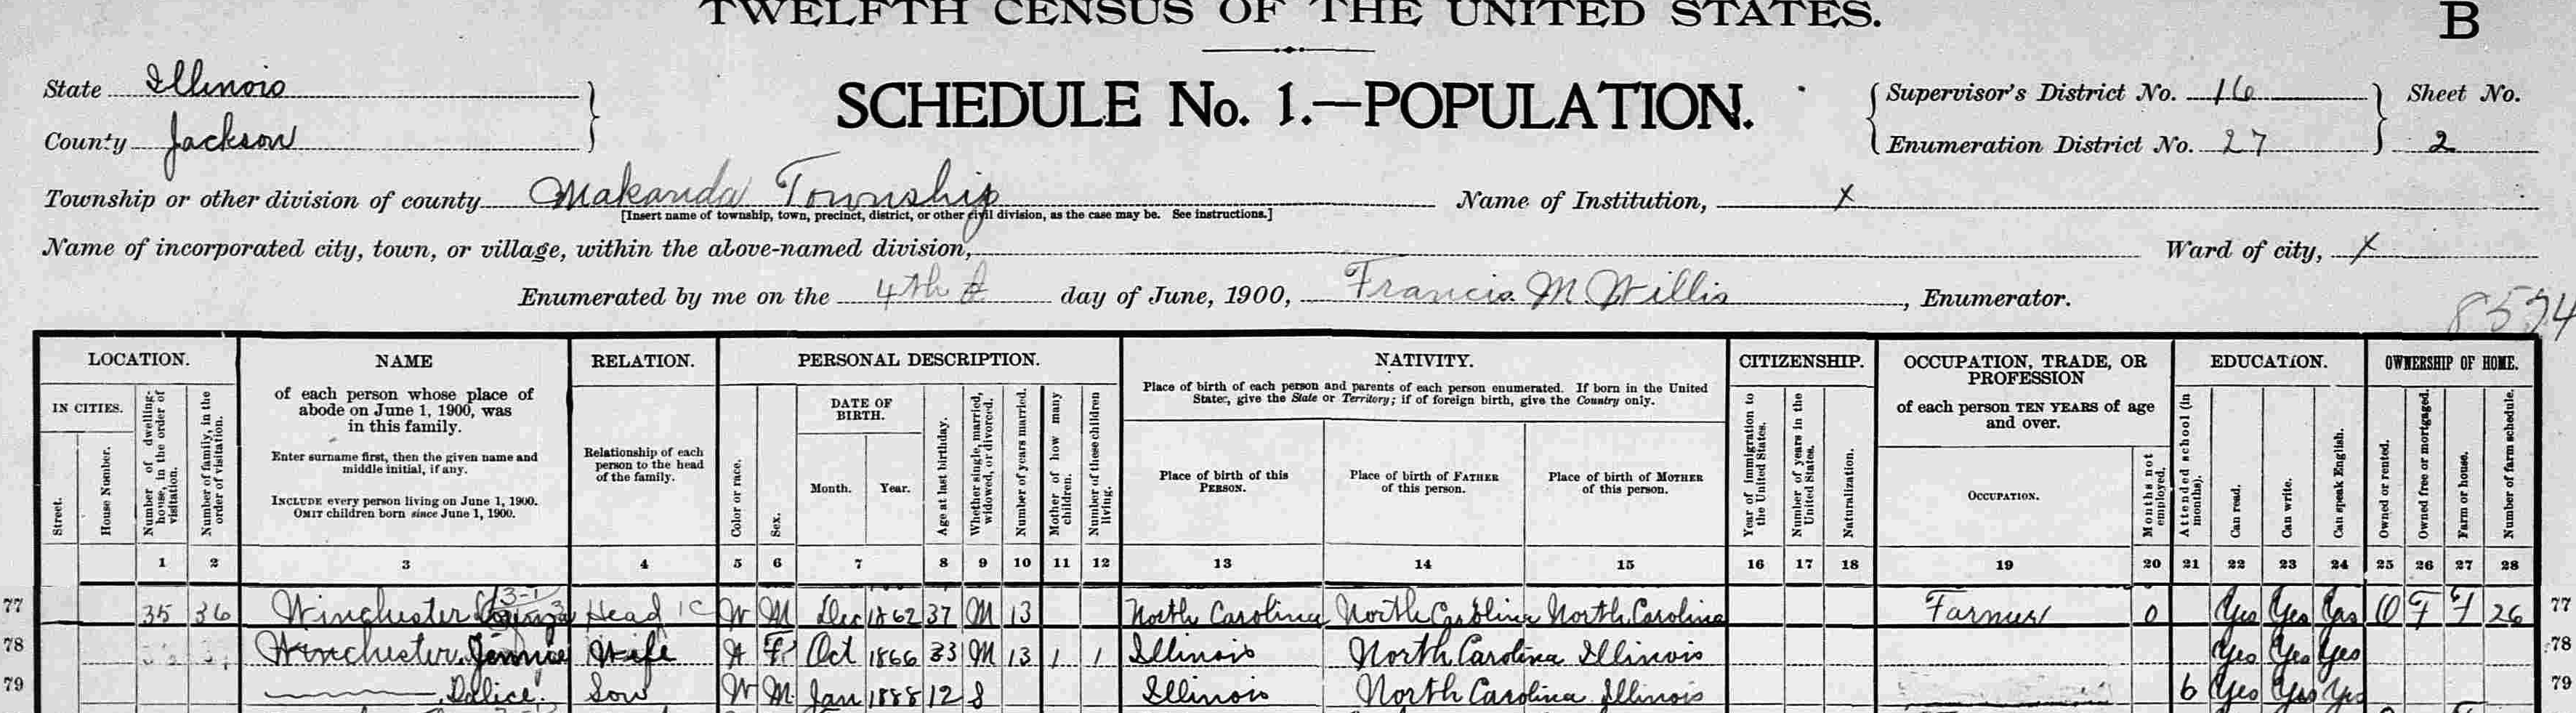 TWELFTH CENSUS OF THE UNITED STATES.
B
State Illinois
County Jackson
SCHEDULE No. 1.—POPULATION.
Supervisor's District No. 16
Enumeration District No. 27
Sheet No.
2
Township or other division of county Makanda Township
[Insert name of township, town, precinct, district, or other civil division, as the case may be. See instructions.]
Name of Institution, X
Name of incorporated city, town, or village, within the above-named division,
Ward of city, X
Enumerated by me on the 4th day of June, 1900, Francis M Willis, Enumerator.
LOCATION.
IN CITIES.
Street.
House Number.
Number of dwelling-house, in the order of visitation.
Number of family, in the order of visitation.
NAME
of each person whose place of
abode on June 1, 1900, was
in this family.
Enter surname first, then the given name and
middle initial, if any.
INCLUDE every person living on June 1, 1900.
OMIT children born since June 1, 1900.
RELATION.
Relationship of each
person to the head
of the family.
PERSONAL DESCRIPTION.
Color or race.
Sex.
DATE OF
BIRTH.
Month. Year.
Age at last birthday.
Whether single, married, widowed, or divorced.
Number of years married.
Mother of how many children.
Number of these children living.
NATIVITY.
Place of birth of each person and parents of each person enumerated. If born in the United
States, give the State or Territory; if of foreign birth, give the Country only.
Place of birth of this
PERSON.
Place of birth of FATHER
of this person.
Place of birth of MOTHER
of this person.
CITIZENSHIP.
Year of immigration to the United States.
Number of years in the United States.
Naturalization.
OCCUPATION, TRADE, OR
PROFESSION
of each person TEN YEARS of age
and over.
OCCUPATION.
Months not employed.
EDUCATION.
Attended school (in months).
Can read.
Can write.
Can speak English.
OWNERSHIP OF HOME.
Owned or rented.
Owned free or mortgaged.
Farm or house.
Number of farm schedule.
1 2 3 4 5 6 7 8 9 10 11 12 13 14 15 16 17 18 19 20 21 22 23 24 25 26 27 28
77 35 36 Winchester Head W M Dec 1862 37 M 13 North Carolina North Carolina North Carolina Farmer 0 Yes Yes Yes O F F 26 77
78 Winchester, Jennie Wife W F Oct 1866 33 M 13 1 1 Illinois North Carolina Illinois Yes Yes Yes 78
79 Son W M Jan 1888 12 S Illinois North Carolina Illinois 6 Yes Yes Yes 79